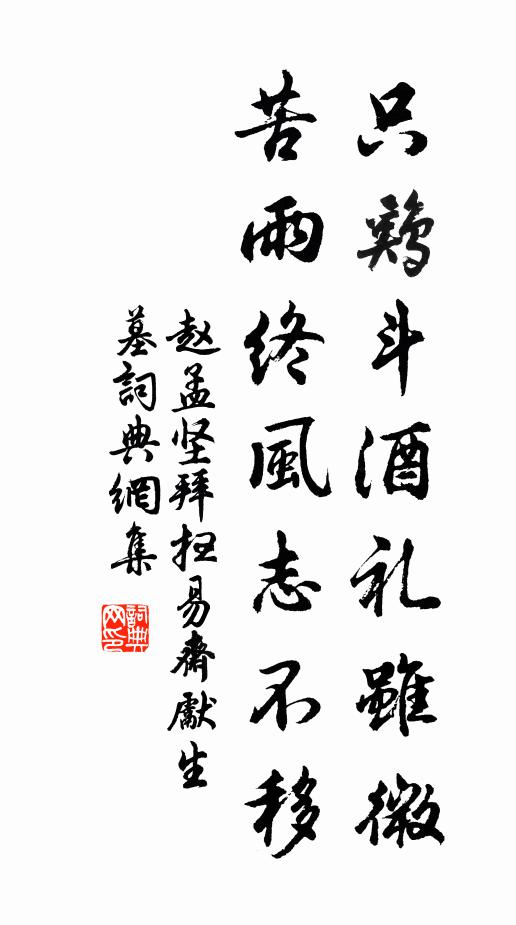 只鷄斗酒礼雖微
苦雨終風志不移
赵孟坚拜抠易齋獻生
墓詞典網集
詞典網印